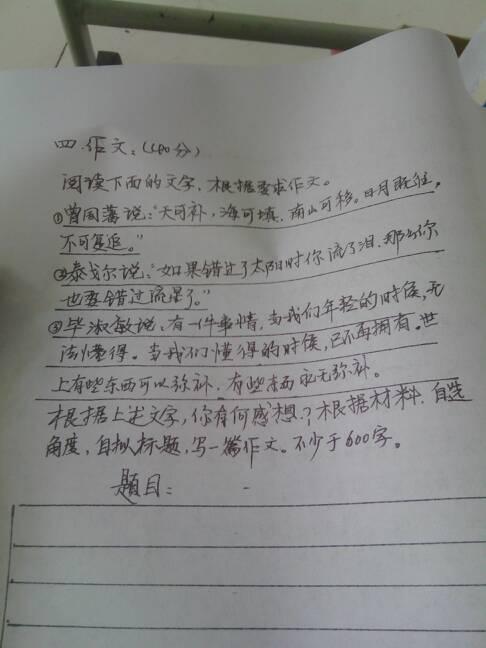 四.作文:(40分)
阅读下面的文字,根据要求作文。
①曾国藩说:“天可补,海可填,南山可移。日月既往,
不可复追。”
②泰戈尔说:“如果错过了太阳时你流了泪,那么你
也要错过流星了。”
③毕淑敏说:有一件事情,当我们年轻的时候,无
法懂得。当我们懂得的时候,已不再拥有。世
上有些东西可以弥补,有些东西永无弥补。
根据上述文字,你有何感想?根据材料,自选
角度,自拟标题,写一篇作文。不少于600字。
题目: